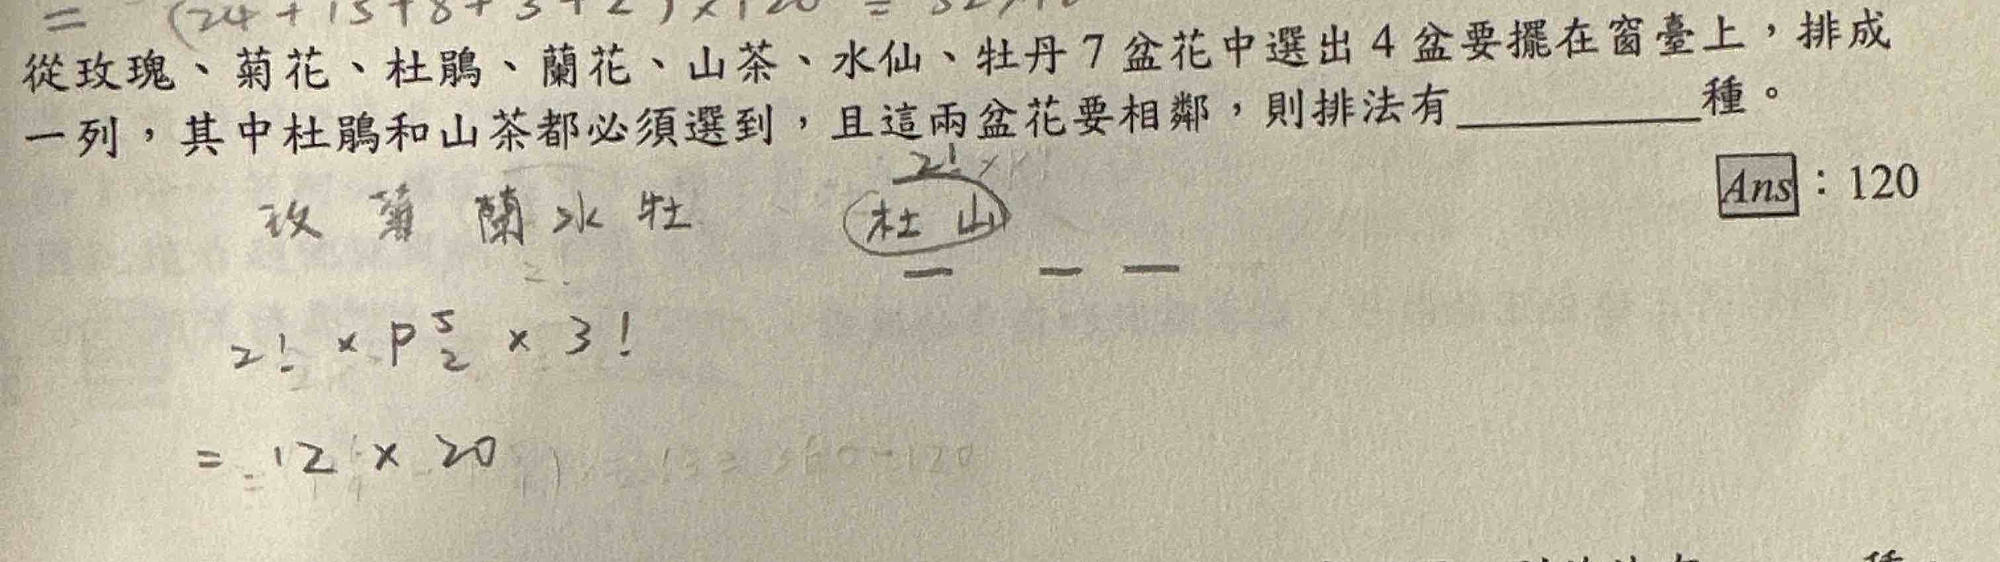 = (24+15+8+3+2)×120 =
從玫瑰、菊花、杜鵑、蘭花、山茶、水仙、牡丹7盆花中選出4盆要擺在窗臺上，排成
一列，其中杜鵑和山茶都必須選到，且這兩盆花要相鄰，則排法有__________種。
Ans：120
2!×
玫 菊 蘭 水 牡 杜 山
2! × P⁵₂ × 3!
= 12 × 20
種